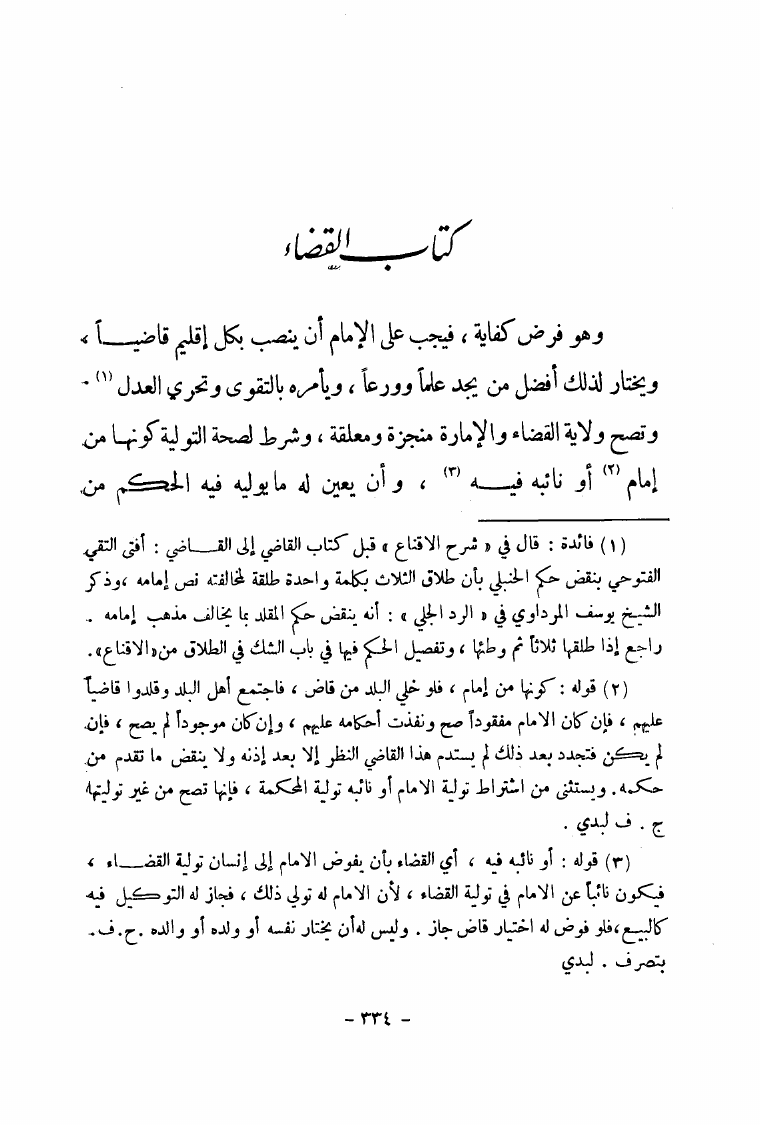 كتاب القضاء
وهو فرض كفاية ، فيجب على الإمام أن ينصب بكل إقليم قاضيـــاً ،
ويختار لذلك أفضل من يجد علماً وورعاً ، ويأمره بالتقوى وتحري العدل (١) .
وتصح ولاية القضاء والإمارة منجزة ومعلقة ، وشرط لصحة التولية كونهـا من
إمام (٢) أو نائبه فيـــه (٣) ، وأن يعين له مايوليه فيه الحكـم من
(١) فائدة : قال في « شرح الاقناع » قبل كتاب القاضي إلى القـــاضي : أفتى التقي
الفتوحي بنقض حكم الحنبلي بأن طلاق الثلاث بكلمة واحدة طلقة لمخالفته نص إمامه ،وذكر
الشيخ يوسف المرداوي في « الرد الجلي » : أنه ينقض حكم المقلد بما يخالف مذهب إمامه .
راجع إذا طلقها ثلاثاً ثم وطئها ، وتفصيل الحكم فيها في باب الشك في الطلاق من«الاقناع».
(٢) قوله : كونها من إمام ، فلو خلي البلد من قاض ، فاجتمع أهل البلد وقلدوا قاضياً
عليهم ، فإن كان الامام مفقوداً صح ونفذت أحكامه عليهم ، وإن كان موجوداً لم يصح ، فإن
لم يكـن فتجدد بعد ذلك لم يستدم هذا القاضي النظر إلا بعد إذنه ولا ينقض ما تقدم من
حكمه. ويستثنى من اشتراط تولية الامام أو نائبه تولية المحكمة ، فإنها تصح من غير توليتها
ح . ف لبدي .
(٣) قوله : أو نائبه فيه ، أي القضاء بأن يفوض الامام إلى إنسان تولية القضـــاء ،
فيكون نائباً عن الامام في تولية القضاء ، لأن الامام له تولي ذلك ، فجاز له التوكيل فيه
كالبيع،فلو فوض له اختيار قاض جاز . وليس له أن يختار نفسه أو ولده أو والده .ح.ف.
بتصرف . لبدي
- ٣٣٤ -